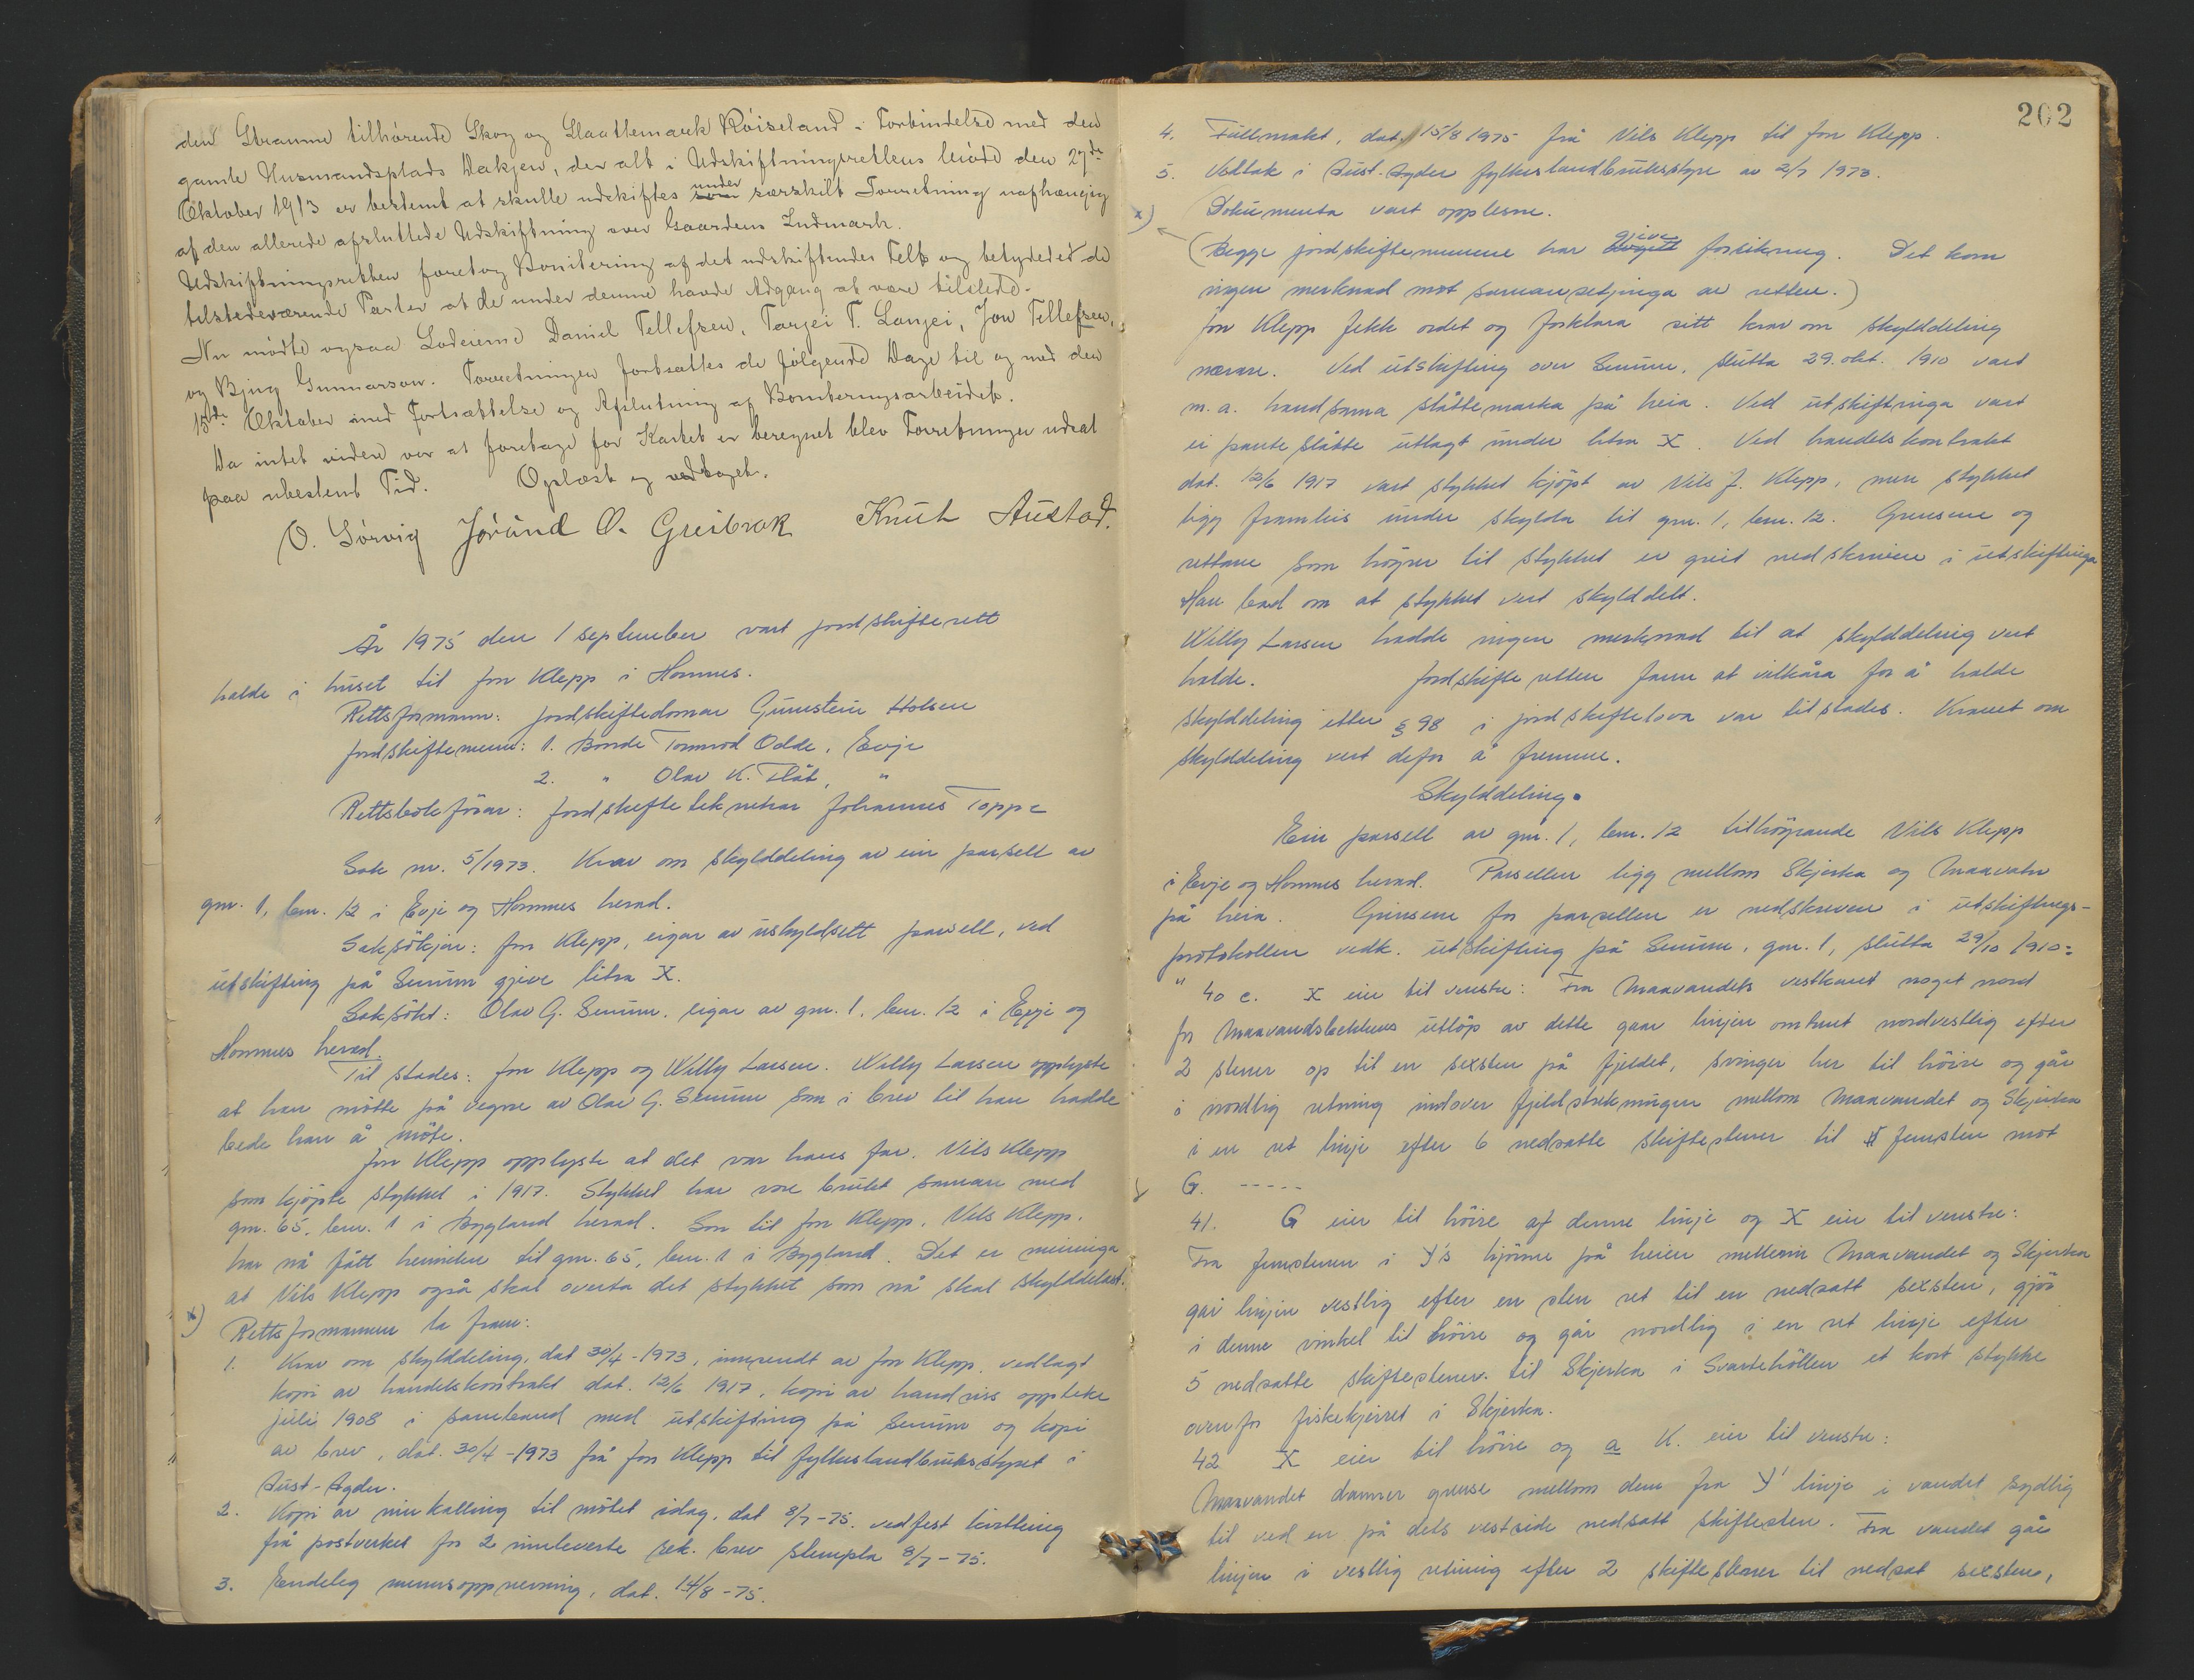 den Straume tilhørende Skog og Slaattemark Røiseland i Forbindelse med den
gamle Husmandsplads Dakjen, der alt i Udskiftningsrettens Møde den 27de
Oktober 1913 er bestemt at skulle udskiftes under særskilt Forretning uafhængig
af den allerede afsluttede Udskiftning over Gaardens Indmark.
Udskiftningsretten foretog Bonitering af det udskiftendes Felt og betydede de
tilstedeværende Parter at de under denne havde Adgang at være tilstede.
Nu mødte ogsaa Lodeierne Daniel Tellefsen, Tarjei T. Langei, Jon Tellefsen,
og Bjug Gunnarson. Forretningen fortsattes de følgende Dage til og med den
15de Oktober med Fortsættelse og Afslutning af Boniteringsarbeidet.
Da intet videre var at foretage før Kartet er beregnet blev Forretningen udsat
paa ubestemt Tid. Oplæst og vedtaget.
O. Sørvig Jørund O. Greibrok Knut Austad.
År 1975 den 1 september vart jordskifterett
halde i huset til Jon Klepp i Hornnes.
Rettsformann: jordskiftedomar Gunstein Holsen
Jordskiftemenn: 1. Bonde Tormod Odde, Evje
2. " Olav K. Flåt, "
Rettsbokførar: Jordskifteteknikar Johannes Toppe
Sak nr. 5/1973. Krav om skylddeling av ein parsell av
gnr. 1, bnr. 12 i Evje og Hornnes herad.
Saksøkjar: Jon Klepp, eigar av uskyldsett parsell, ved
utskifting på Senum gjeve litra X.
Saksøkt: Olav G. Senum, eigar av gnr. 1, bnr. 12 i Evje og
Hornnes herad.
Til stades: Jon Klepp og Willy Larsen. Willy Larsen opplyste
at han møtte på vegne av Olav G. Senum som i brev til han hadde
bede han å møte.
Jon Klepp opplyste at det var hans far, Nils Klepp
som kjøpte stykket i 1917. Stykket har vore brukt saman med
gnr. 65, bnr. 1 i Bygland herad. Son til Jon Klepp, Nils Klepp,
har nå fått heimelen til gnr. 65, bnr. 1 i Bygland. Det er meininga
at Nils Klepp også skal overta det stykket som nå skal skylddelast.
x) Rettsformannen la fram:
1. Krav om skylddeling, dat 30/4-1973, innsendt av Jon Klepp, vedlagt
kopi av handelskontrakt dat. 12/6 1917, kopi av handriss oppteke
juli 1908 i samband med utskifting på Senum og kopi
av brev, dat. 30/4-1973 frå Jon Klepp til fylkeslandbruksstyret i
Aust-Agder.
2. Kopi av innkalling til møtet idag, dat 8/7-75. vedfest kvittering
frå postverket for 2 innleverte rek. brev stempla 8/7-75.
3. Endeleg mennsoppnevning, dat. 14/8-75.
202
4. Fullmakt, dat. 15/8 1975 frå Nils Klepp til Jon Klepp.
5. Vedtak i Aust-Agder fylkeslandbruksstyre av 2/7 1973.
Dokumenta vart opplesne.
x) (Begge jordskiftemennene har gjeve forsikring. Det kom
ingen merknad mot samansetjinga av retten.)
Jon Klepp fekk ordet og forklara sitt krav om skylddeling
nærare. Ved utskifting over Senum, slutta 29. okt. 1910 vart
m.a. handsama slåttemarka på heia. Ved utskiftinga vart
ei parte slåtte utlagt under litra X. Ved handelskontrakt
dat. 12/6 1917 vart stykket kjøpt av Nils J. Klepp, men stykket
ligg framleis under skylda til gnr. 1, bnr. 12. Grensene og
rettane som høyrer til stykket er greit nedskrivne i utskiftinga
Han bad om at stykket vert skylddelt.
Willy Larsen hadde ingen merknad til at skylddeling vert
halde. Jordskifteretten fann at vilkåra for å halde
skylddeling etter § 98 i jordskiftelova var tilstades. Kravet om
skylddeling vert defor å fremme.
Skylddeling.
Ein parsell av gnr. 1, bnr. 12 tilhøyrande Nils Klepp
i Evje og Hornnes herad. Parsellen ligg mellom Skjerka og Maavatn
på heia. Grensene for parsellen er nedskreven i utskiftings-
protokollen vedk. utskifting på Senum, gnr. 1, slutta 29/10 1910:
" 40 c. X eier til venstre: Fra Maavandets vestkant noget nord
for Maavandsbekkens utløp av dette gaar linjen omtrent nordvestlig efter
2 stener op til en sexsten på fjeldet, svinger her til høire og går
i nordlig retning indover fjeldstrekningen mellom Maavandet og Skjerka
i en ret linje efter 6 nedsatte skiftestener til femsten mot
G. -----
41. G eier til høire af denne linje og X eier til venstre:
Fra femstenen i Y's hjørne på heien mellem Maavandet og Skjerka
går linjen vestlig efter en sten ret til en nedsatt sexsten, gjør
i denne vinkel til høire og går nordlig i en ret linje efter
5 nedsatte skiftestener til Skjerka i Svartehøllen et kort stykke
ovenfor fiskekjerret i Skjerka.
42 X eier til høire og a K. eier til venstre:
Maavandet danner grense mellom dem fra Y' linje i vandet sydlig
til ved en på dets vestside nedsatt skiftesten. Fra vandet går
linjen i vestlig retning efter 2 skiftestener til nedsat sexsten,